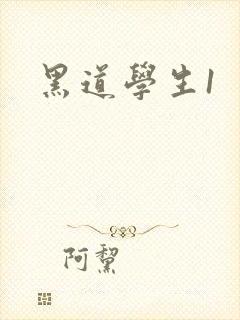 黑道學生1
阿黧